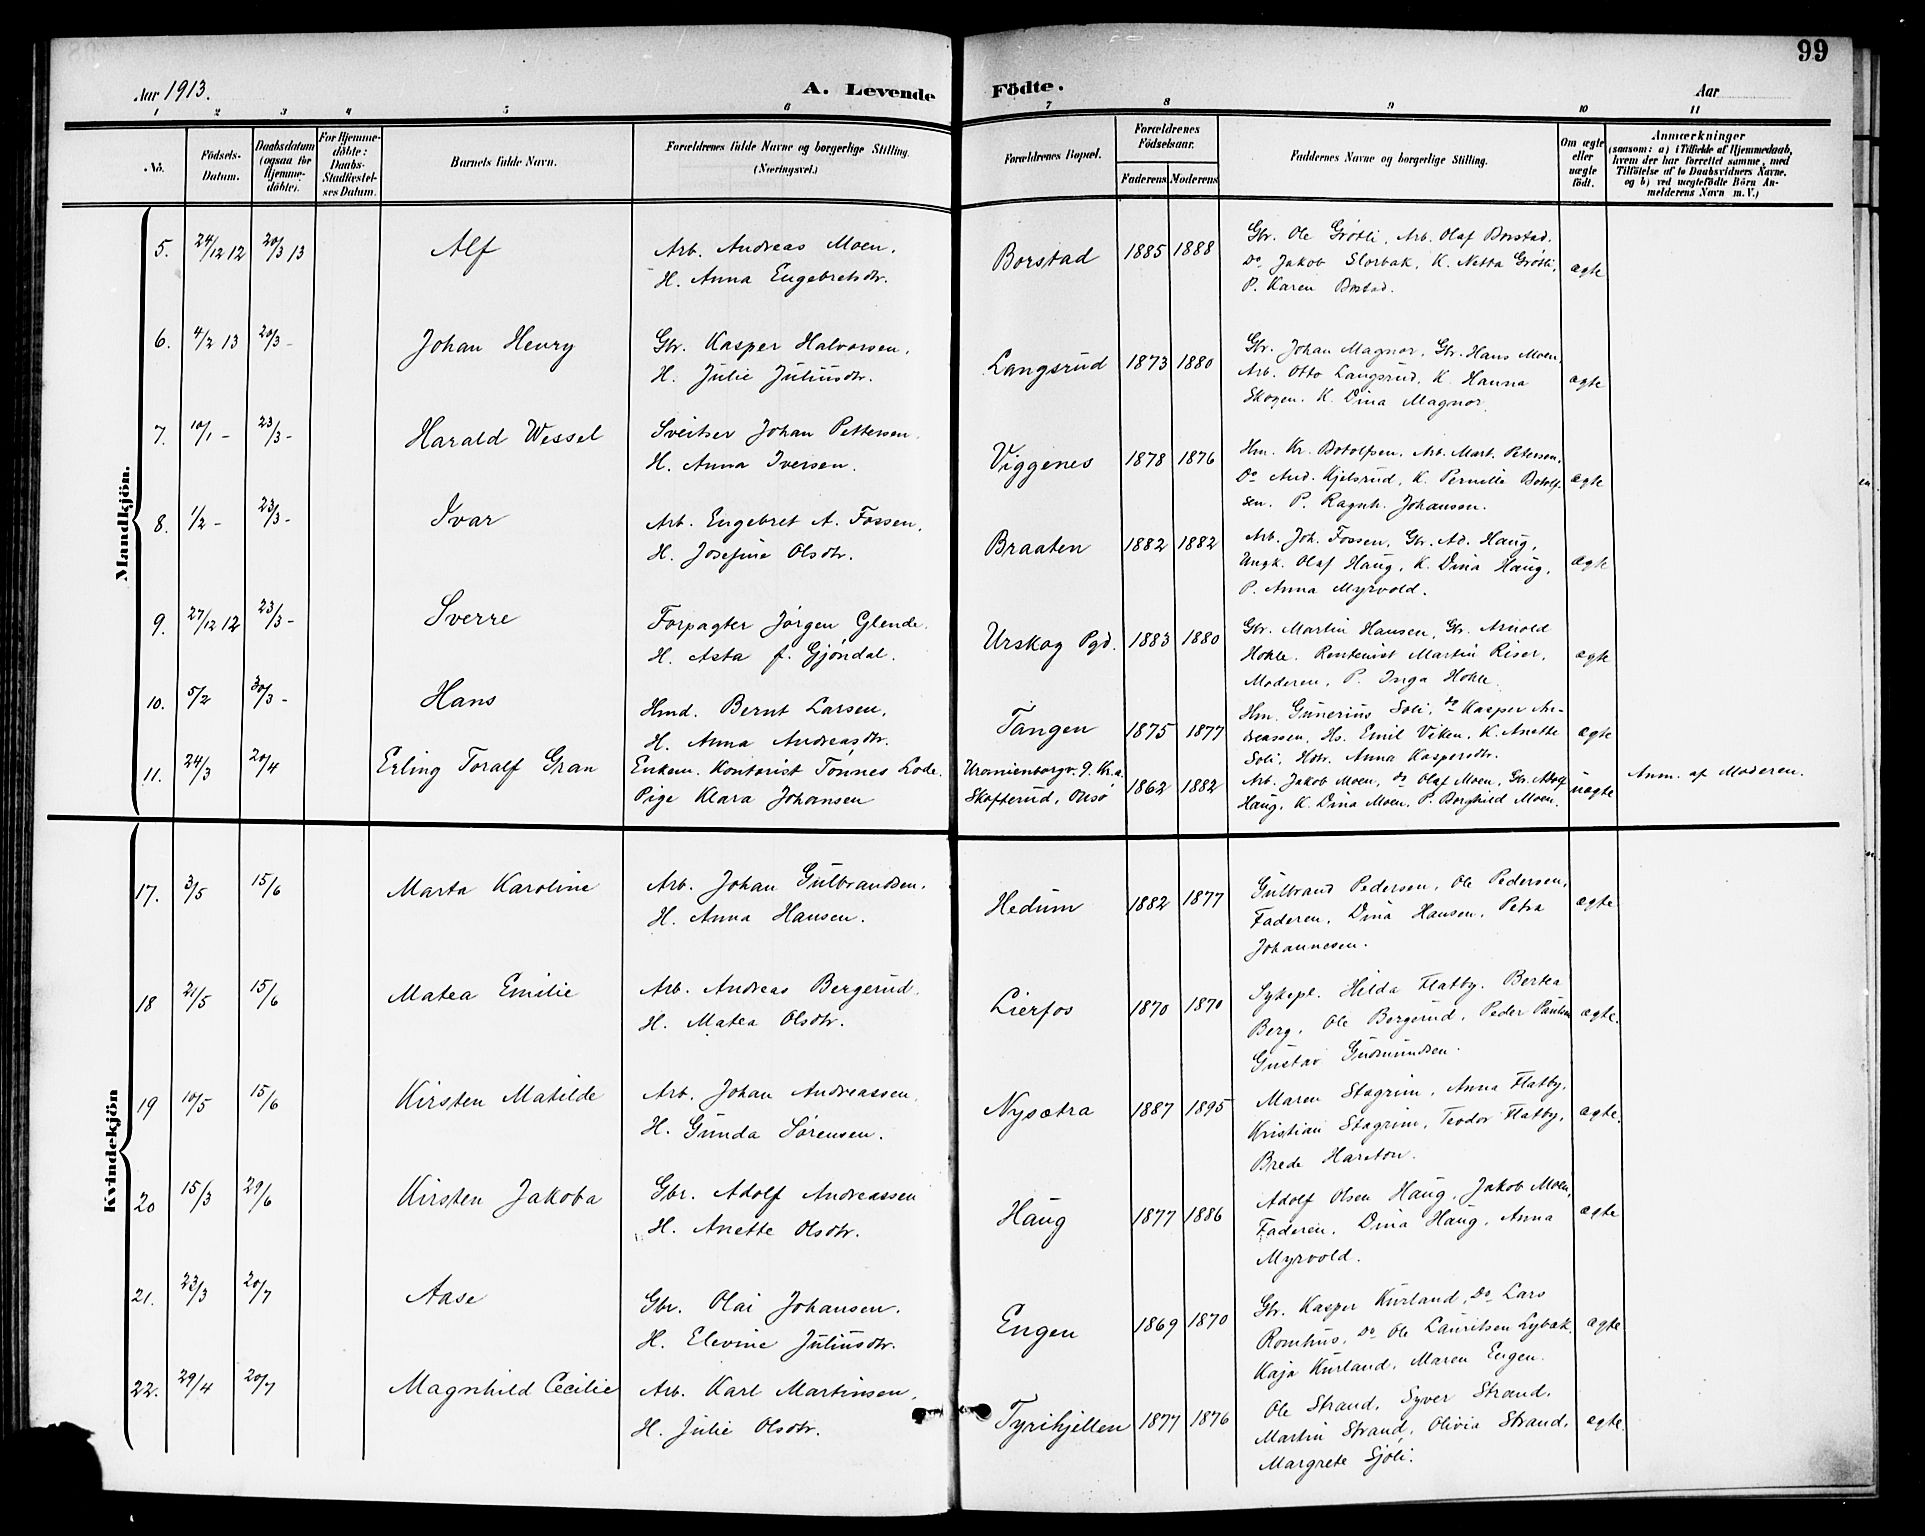 99
Aar 1913.
A. Levende Födte.
Aar
1 2 3 4 5 6 7 8 9 10 11
No.
Födsels-Datum.
Daabsdatum (ogsaa for Hjemme-döbte).
For Hjemme-döbte: Daabs-Stadfæstel-ses Datum.
Barnets fulde Navn.
Forældrenes fulde Navne og borgerlige Stilling. (Næringsvei.)
Forældrenes Bopæl.
Forældrenes Födselsaar.
Faderens Moderens
Faddernes Navne og borgerlige Stilling.
Om ægte eller uægte födt.
Anmærkninger
(saasom: a) i Tilfælde af Hjemmedaab, hvem der har forrettet samme, med Tilföielse af to Daabsvidners Navne. og b) ved uægtefödte Börn An-melderens Navn m. V.)
Mandkjön.
5. 24/12 12 20/3 13 Alf Arb. Andreas Moen, Borstad 1885 1888 Gbr. Ole Grøtli, Arb. Olaf Borstad.
H. Anna Engebretsdtr. Do Jakob Slorbak, K. Netta Grøtli, ægte
P. Karen Borstad.
6. 4/2 13 20/3 - Johan Henry Gbr. Kasper Halvorsen, Langsrud 1873 1880 Gbr. Johan Magnor, Gbr. Hans Moen,
H. Julie Juliusdtr. Arb. Otto Langsrud, K. Hanna ægte
Skogen. K. Dina Magnor.
7. 10/1 - 23/3 - Harald Wessel Sveitser Johan Pettersen. Viggenes 1878 1876 Hm. Kr. Botolfsen, Arb. Mart. Petersen,
H. Anna Iversen. Do And. Kjelsrud, K. Pernille Botolf- ægte
sen. P. Ragnh. Johansen.
8. 1/2 - 23/3 - Ivar Arb. Engebret A. Fossen, Braaten 1882 1882 Arb. Joh. Fossen, Gbr. Ad. Haug,
H. Josefine Olsdtr. Ungk. Olaf Haug, K. Dina Haug, ægte
P. Anna Myrvold.
9. 27/12 12 23/3 - Sverre Forpagter Jørgen Glende. Urskog Pgd. 1883 1880 Gbr. Martin Hansen, Gbr. Arnold
H. Asta f. Gjøndal. Hohle. Rentenist Martin Riser, ægte
Moderen, P. Inga Hohle.
10. 5/2 30/3 - Hans Hmd. Bernt Larsen, Tangen 1875 1877 Hm. Gunerius Soli, do Kasper An-
H. Anna Andreasdtr. dreassen, Hs. Emil Viken, K. Anette ægte
Soli, Hdtr. Anna Kaspersdtr.
11. 24/3 20/4 Erling Toralf Gran Enkem. Kontorist Tønnes Lode. Uranienborgv. 9. Kr.a. 1862 1882 Arb. Jakob Moen, do Olaf Moen, Gbr. Adolf uægte Anm. af Moderen.
Pige Klara Johansen Skofterud, Onsø Haug, K. Dina Moen, P. Borghild Moen.
Kvindekjön
17. 3/5 15/6 Marta Karoline Arb. Johan Gulbrandsen. Hedum 1882 1877 Gulbrand Pedersen, Ole Pedersen, ægte
H. Anna Hansen. Faderen, Dina Hansen, Petra
Johannesen.
18 21/5 15/6 Matea Emilie Arb. Andreas Bergerud. Lierfos 1870 1870 Sykepl. Hilda Flatby. Berta
H. Matea Olsdtr. Berg, Ole Bergerud, Peder Paulsen ægte.
Gustav Gudmundsen.
19 10/5 15/6 Kirsten Matilde Arb. Johan Andreassen. Nysætra 1887 1895 Maren Stagrim, Anna Flatby.
H. Gunda Sørensen. Kristian Stagrim, Teodor Flatby, ægte.
Brede Hareton.
20 15/3 29/6 Kirsten Jakoba Gbr. Adolf Andreassen Haug 1877 1886 Adolf Olsen Haug, Jakob Moen,
H. Anette Olsdtr. Faderen, Dina Haug, Anna ægte
Myrvold.
21. 23/3 20/7 Aase Gbr. Olai Johansen. Engen 1869 1870 Gbr. Kasper Kurland, Do Lars
H. Elevine Juliusdtr. Romhus, Do Ole Lauritsen Lybak, ægte
Kaja Kurland, Maren Engen.
22. 29/4 20/7 Magnhild Cecilie Arb. Karl Martinsen, Tyrihjellen 1877 1876 Ole Strand, Syver Strand,
H. Julie Olsdtr. Martin Strand, Olivia Strand, ægte.
Margrete Sjøli.